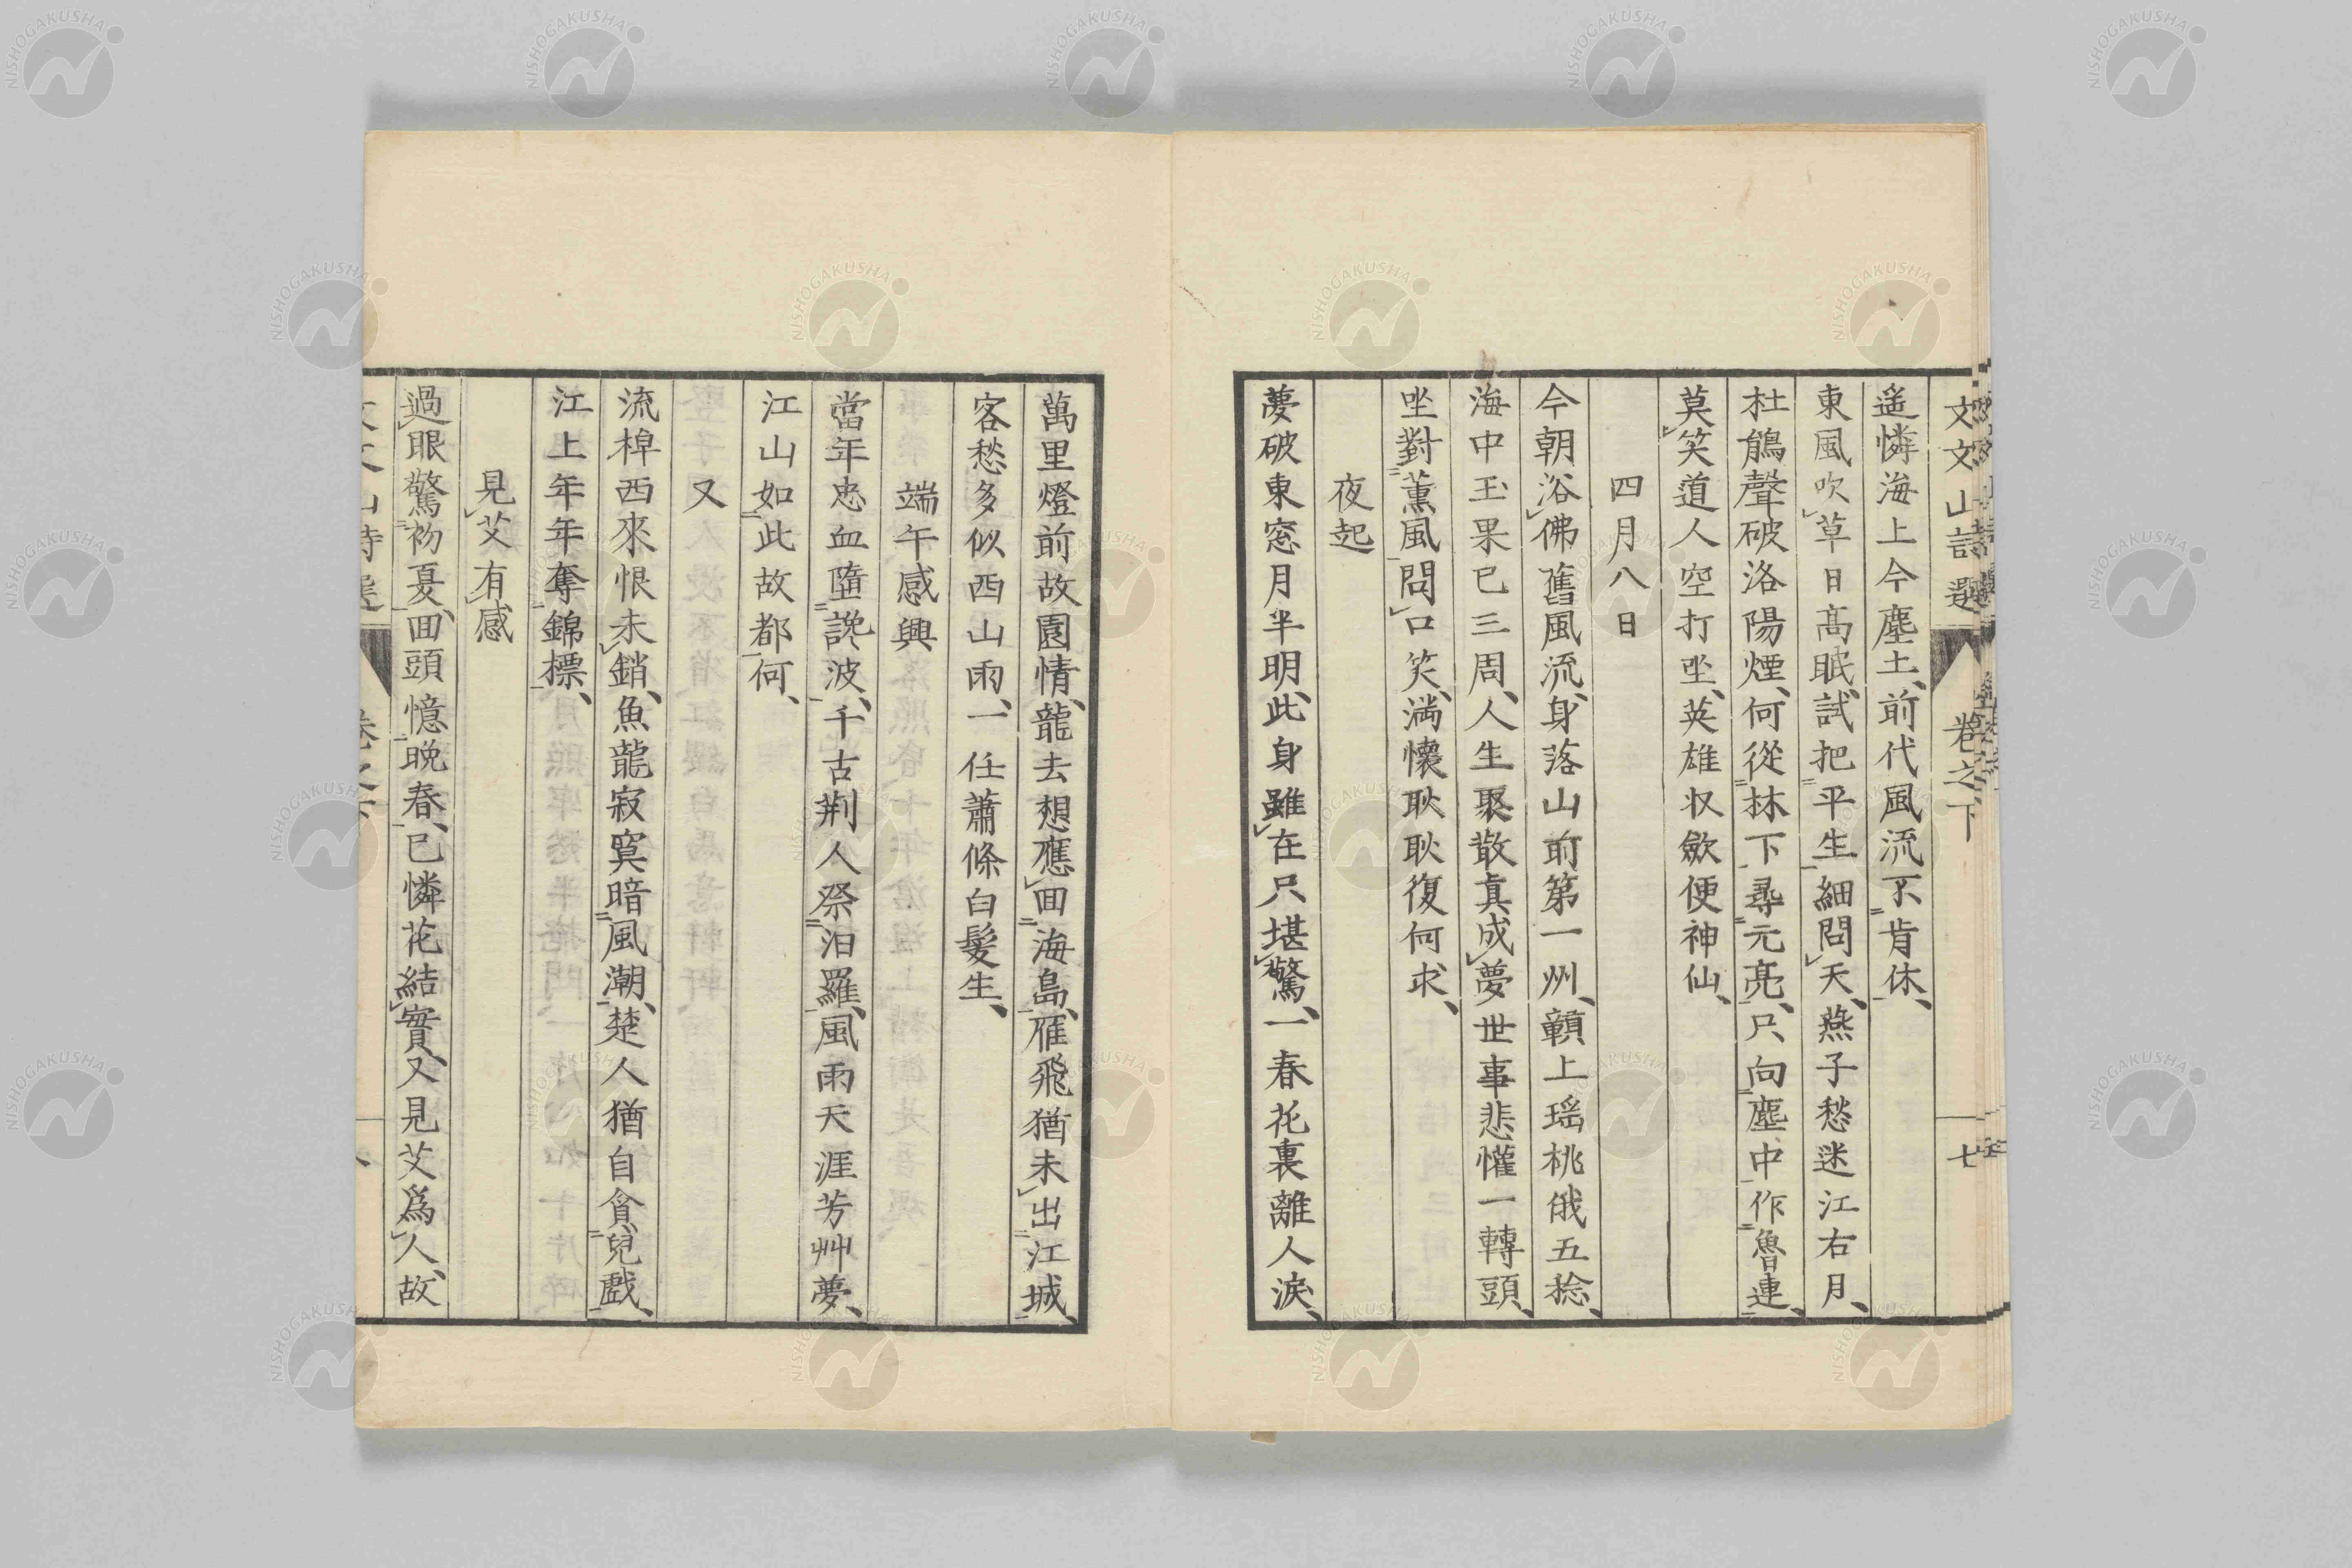 文文山詩選 卷之下 七
遙憐海上今塵土、前代風流不肯休、
東風吹草日高眠、試把平生細問天、燕子愁迷江右月、
杜鵑聲破洛陽煙、何從林下尋元亮、只向塵中作魯連、
莫笑道人空打坐、英雄収斂便神仙、
四月八日
今朝浴佛舊風流、身落山前第一州、顙上瑶桃俄五捻、
海中玉果已三周、人生聚散真成夢世事悲懽一轉頭、
坐對薫風問口笑、満懷耿耿復何求、
夜起
夢破東窓月半明、此身雖在只堪驚、一春花裏離人淚、
萬里燈前故園情、龍去想應回海島、雁飛猶未出江城、
客愁多似西山雨、一任蕭條白髪生、
端午感興
當年忠血墮讒波、千古荆人祭汨羅、風雨天涯芳艸夢、
江山如此故都何、
又
流棹西來恨未銷、魚龍寂寞暗風潮、楚人猶自貪兒戲、
江上年年奪錦標、
見艾有感
過眼驚初夏、回頭憶晩春、已憐花結實、又見艾爲人、故